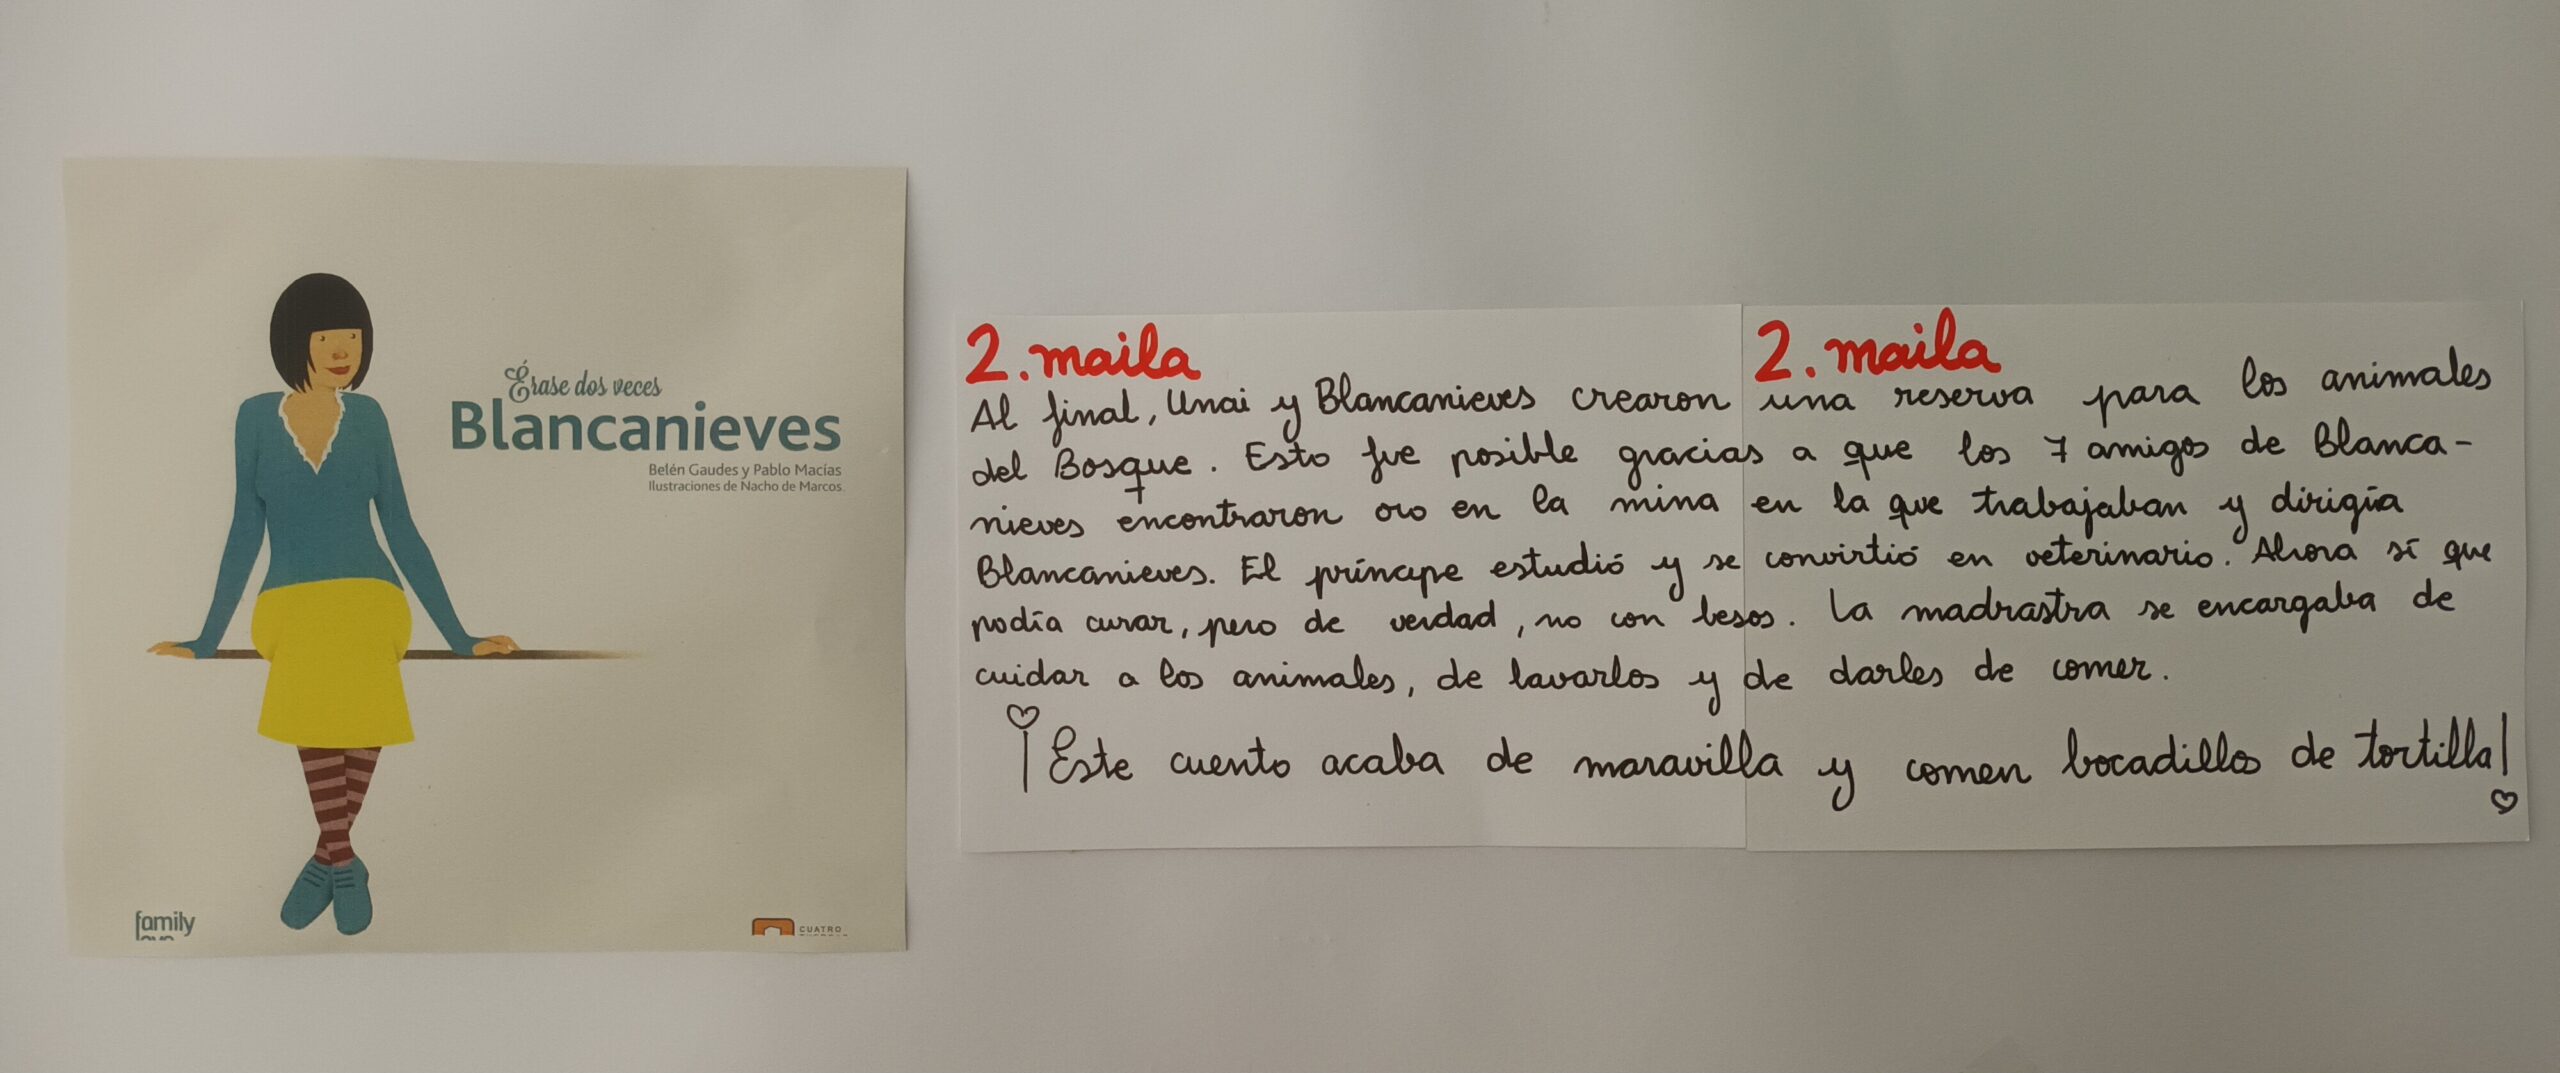 Érase dos veces
Blancanieves
Belén Gaudes y Pablo Macías
Ilustraciones de Nacho de Marcos
family
CUATRO
2. maila 2. maila
Al final, Unai y Blancanieves crearon una reserva para los animales
del Bosque. Esto fue posible gracias a que los 7 amigos de Blanca-
nieves encontraron oro en la mina en la que trabajaban y dirigía
Blancanieves. El príncipe estudió y se convirtió en veterinario. Ahora sí que
podía curar, pero de verdad, no con besos. La madrastra se encargaba de
cuidar a los animales, de lavarlos y de darles de comer.
¡Este cuento acaba de maravilla y comen bocadillos de tortilla!